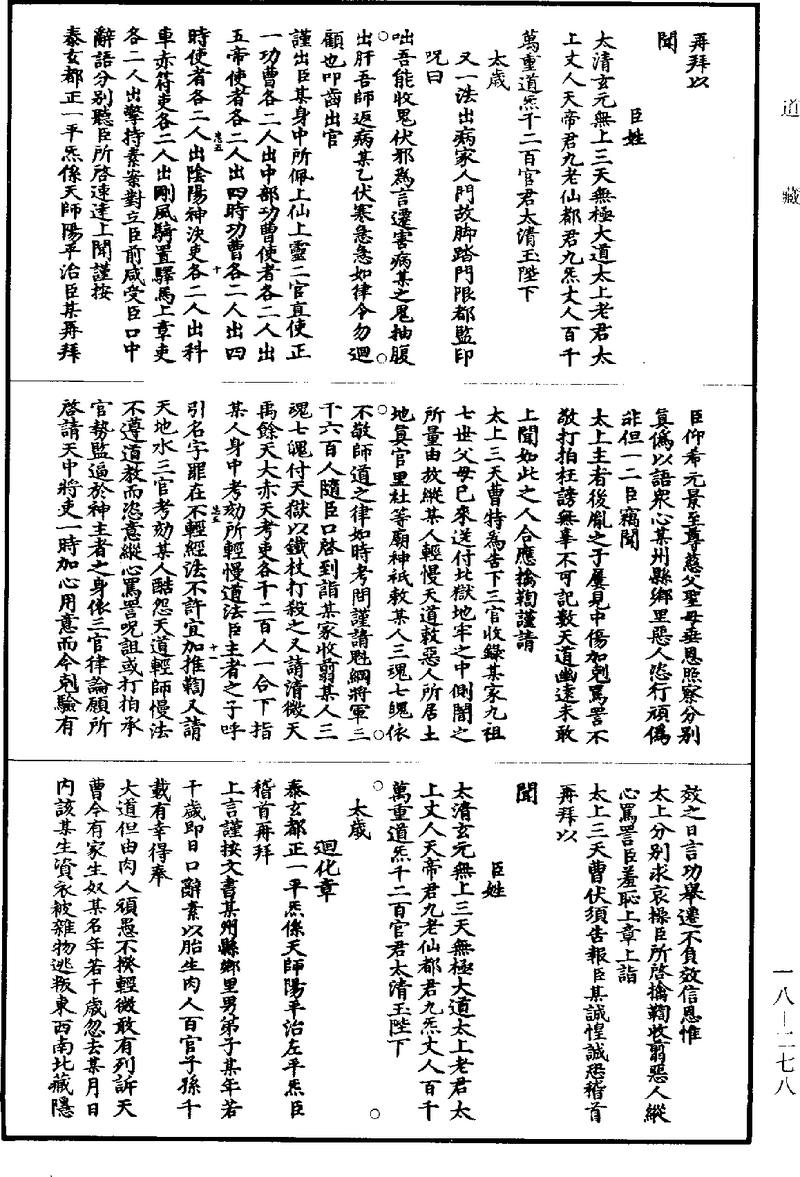 道藏
再拜以
聞
臣姓
太清玄元無上三天無極大道太上老君太
上丈人天帝君九老仙都君九炁丈人百千
萬重道炁千二百官君太清玉陛下
太歲
又一法出病家人門故脚踏門限都監印
呪曰
咄吾能收鬼伏邪為言遷害病某之鬼抽腹
出肝吾師返病某乙伏寒急急如律令勿迴
顧也叩齒出官
謹出臣某身中所佩上仙上靈二官直使正
一功曹各二人出中部功曹使者各二人出
五帝使者各二人出四時功曹各二人出四
卷五
十
時使者各二人出陰陽神決吏各二人出科
車赤符吏各二人出剛風騎置驛馬上章吏
各二人出擎持素案對立臣前咸受臣口中
辭語分別聽臣所啓速達上聞謹按
泰玄都正一平炁係天師陽平治臣某再拜
臣仰希元景至尊慈父聖母垂恩照察分別
真僞以語衆心某州縣鄉里惡人恣行頑僞
非但一二臣竊聞
太上主者後胤之子屢見中傷加剋罵詈不
敬打拍枉謗無辜不可記數天道幽遠未敢
上聞如此之人合應擒鞫謹請
太上三天曹特為告下三官收錄某家九祖
七世父母已來送付北獄地牢之中側闇之
所量由放縱某人輕慢天道敕惡人所居土
地真官里社等廟神祇敕某人三魂七魄依
不敬師道之律如時考問謹請魁綱將軍三
千六百人隨臣口啓到詣某家收翦某人三
魂七魄付天獄以鐵杖打殺之又請清微天
禹餘天大赤天考吏各千二百人一合下指
某人身中考劾所輕慢道法臣主者之子呼
卷五
十一
引名字罪在不輕經法不許宜加推鞫又請
天地水三官考劾某人酷怨天道輕師慢法
不遵道教而恣意縱心罵詈呪詛或打拍承
官勢監逼於神主者之身依三官律論願所
啓請天中將吏一時加心用意而令剋驗有
效之日言功舉遷不負效信恩惟
太上分別求哀操臣所啓擒鞫收翦惡人縱
心罵詈臣羞恥上章上詣
太上三天曹伏須告報臣某誠惶誠恐稽首
再拜以
聞
臣姓
太清玄元無上三天無極大道太上老君太
上丈人天帝君九老仙都君九炁丈人百千
萬重道炁千二百官君太清玉陛下
太歲
迴化章
泰玄都正一平炁係天師陽平治左平炁臣
稽首再拜
上言謹按文書某州縣鄉里男弟子某年若
干歲即日口辭素以胎生肉人百官子孫千
載有幸得奉
大道但由肉人頑愚不揆輕微敢有列訴天
曹今有家生奴某名年若干歲忽去某月日
内該某生資衣被雜物逃叛東西南北藏隱
一八—二七八